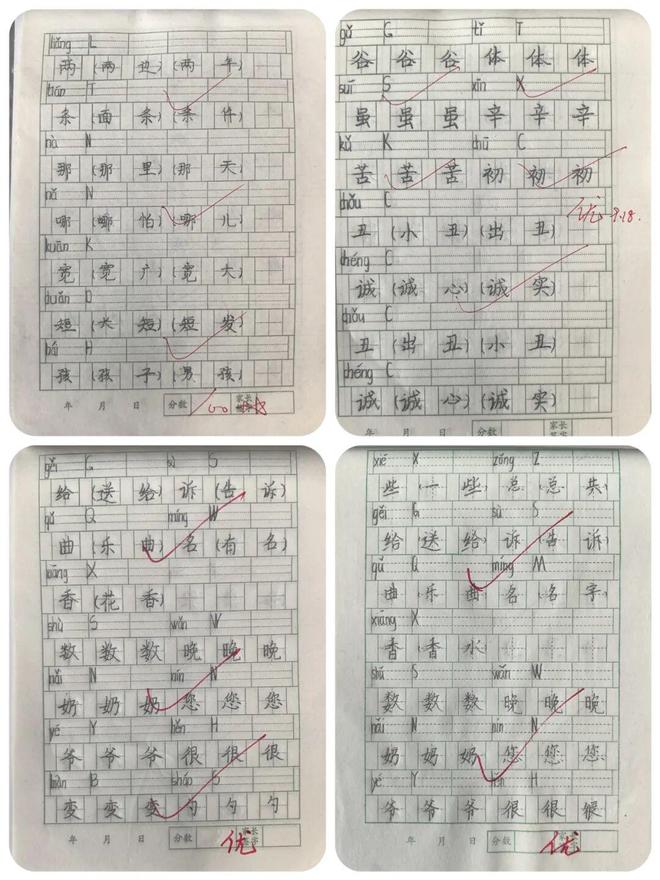 liǎng L
两 (两 边) (两 年)
tiáo T
条 (面 条) (条 件)
nà N
那 (那 里) (那 天)
nǎ N
哪 (哪 怕) (哪 儿)
kuān K
宽 (宽 广) (宽 大)
duǎn D
短 (长 短) (短 发)
hái H
孩 (孩 子) (男 孩)
年 月 日 分数 100 家长
gǔ G tǐ T
谷 谷 谷 体 体 体
suī S xīn X
虽 虽 虽 辛 辛 辛
kǔ K chū C
苦 苦 苦 初 初 初
chǒu C
丑 (小 丑) (出 丑)
chéng C
诚 (诚 心) (诚 实)
优 9.18.
chǒu C
丑 (出 丑) (小 丑)
chéng C
诚 (诚 心) (诚 实)
年 月 日 分数 家长签字
gěi G sù S
给 (送 给) 诉 (告 诉)
qǔ Q míng W
曲 (乐 曲) 名 (有 名)
xiāng X
香 (花 香)
shù S wǎn W
数 数 数 晚 晚 晚
nǎi N nín N
奶 奶 奶 您 您 您
yé Y hěn H
爷 爷 爷 很 很 很
biàn B sháo S
变 变 变 勺 勺 勺
年 月 日 分数 家长签字
优
xiē X zǒng Z
些 一 些 总 总 共
gěi G sù S
给 送 给 诉 告 诉
qǔ Q míng M
曲 乐 曲 名 名 字
xiāng X
香 香 水
shù S wǎn W
数 数 数 晚 晚 晚
nǎi N nín N
奶 奶 奶 您 您 您
yé Y hěn H
爷 爷 爷 很 很 很
年 月 日 分数 家长签字
优